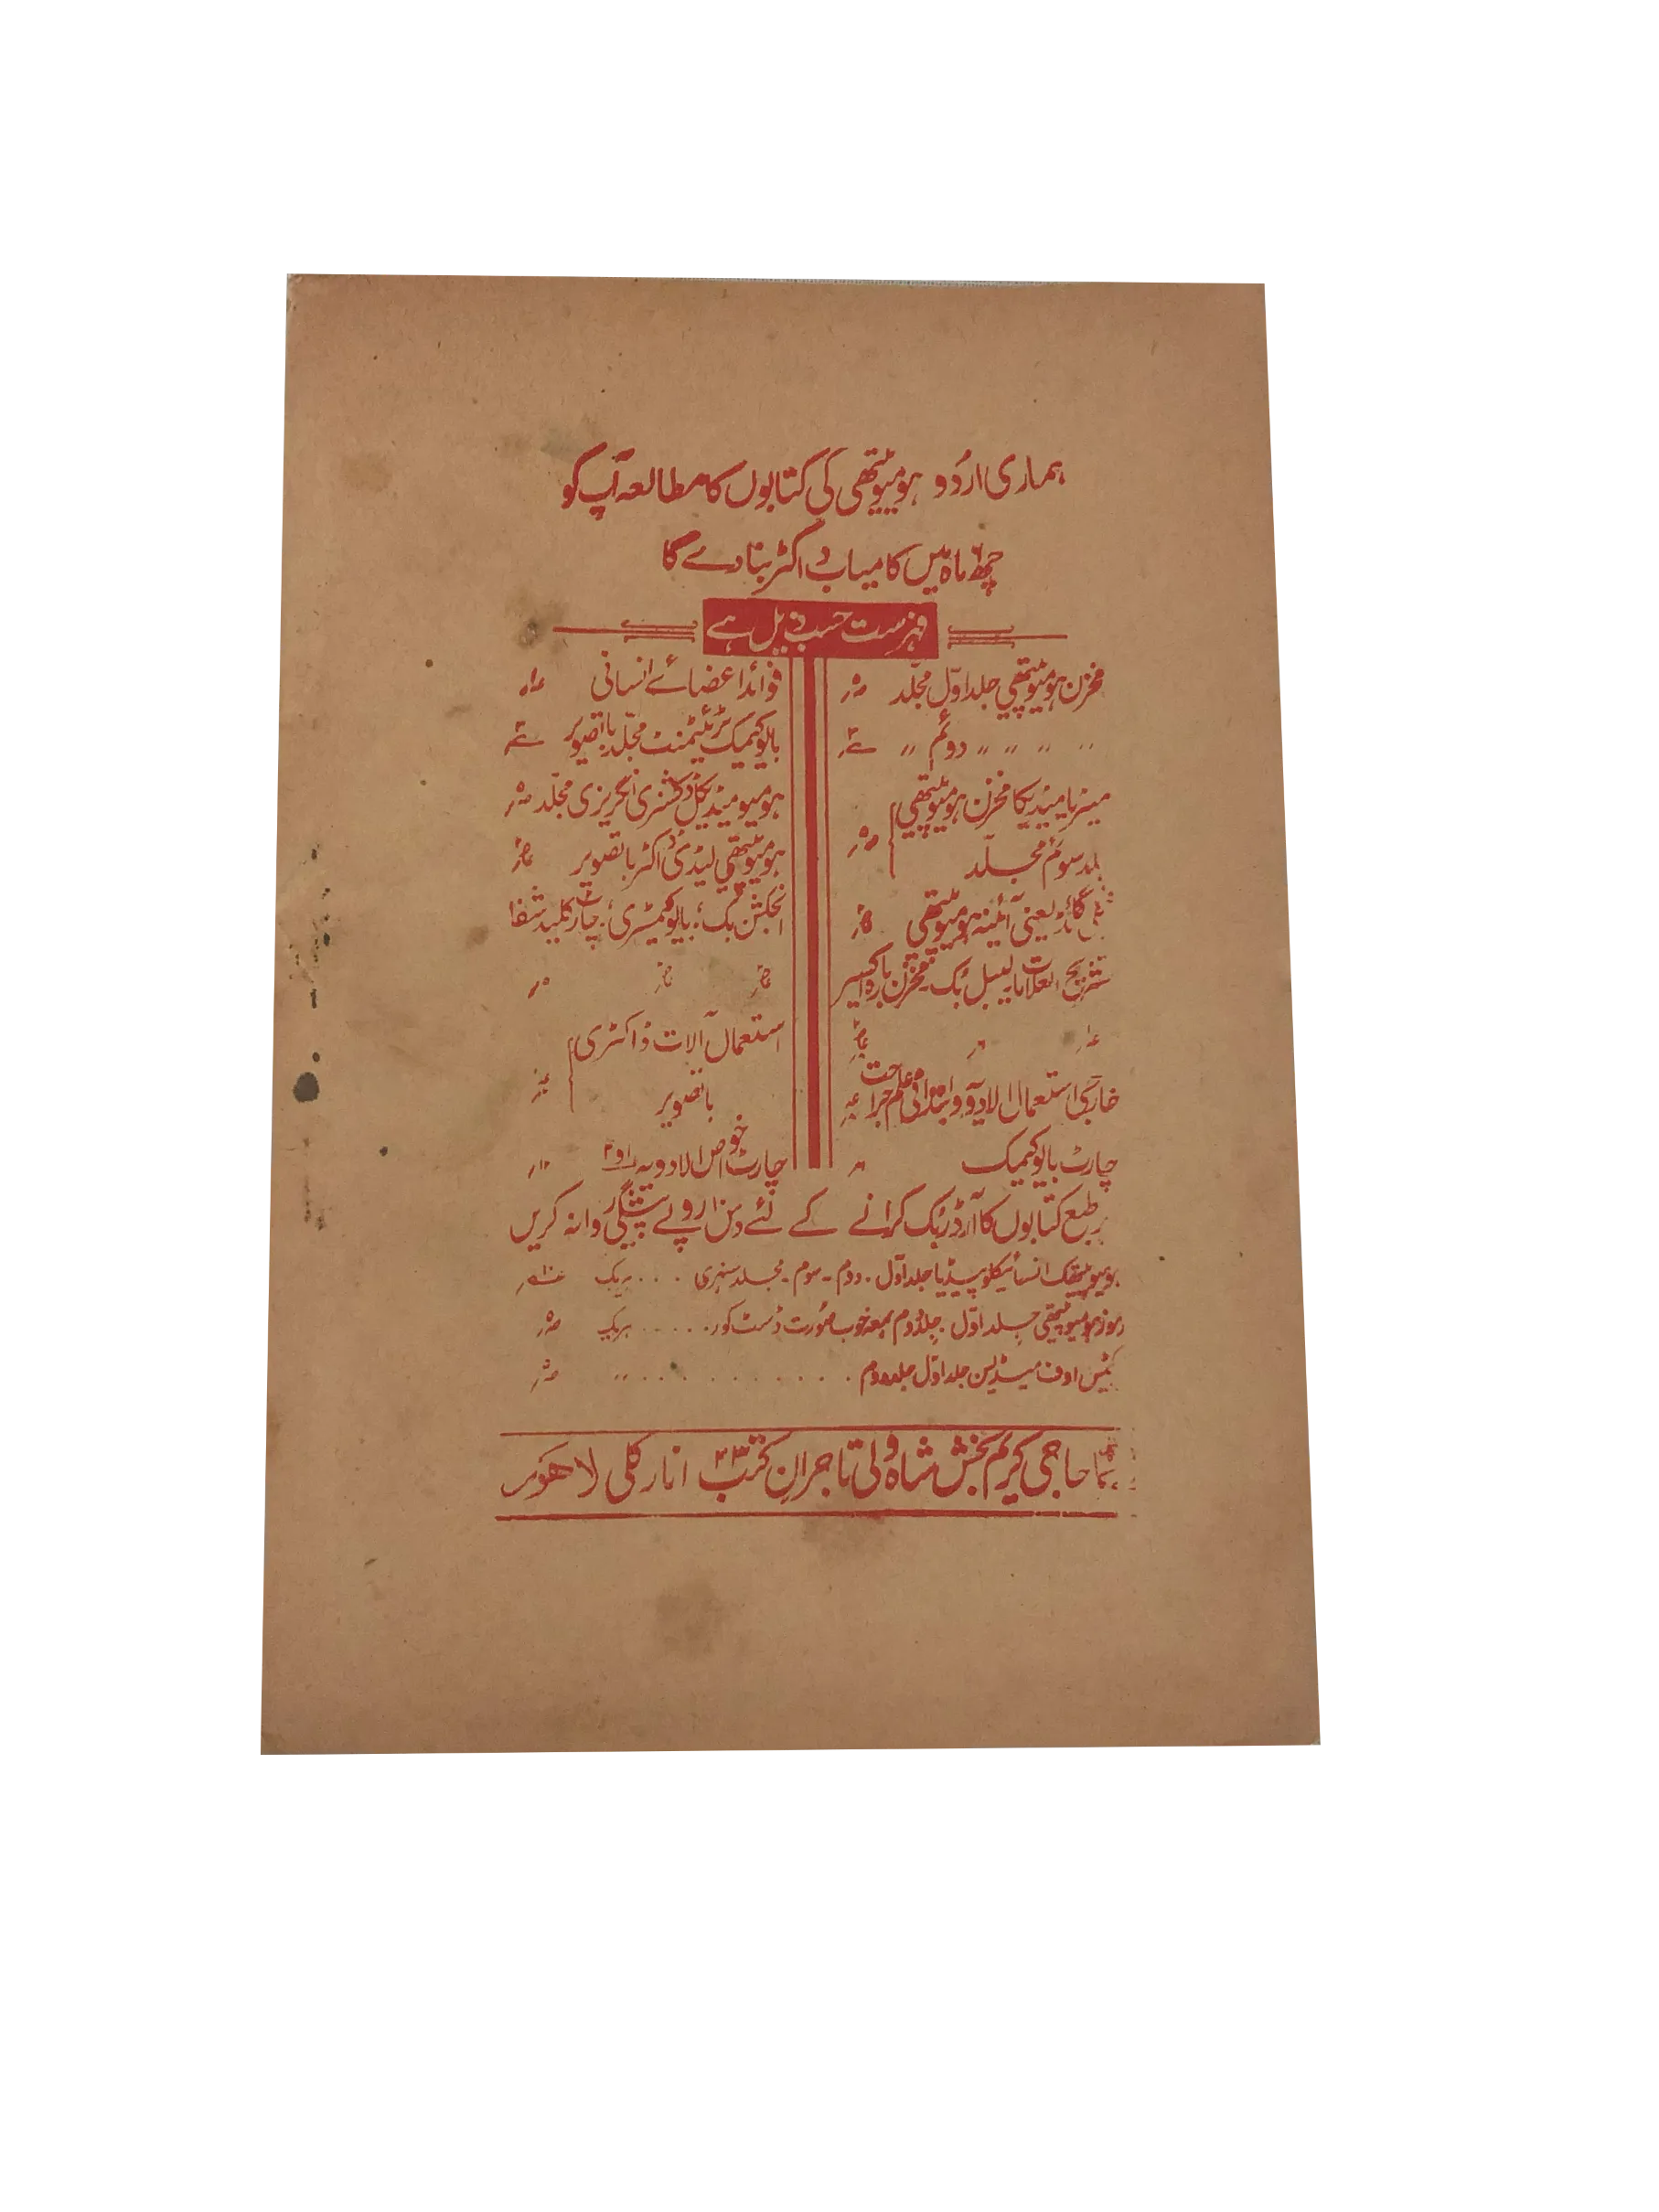 ہماری اردو ہومیوپیتھی کی کتابوں کا مطالعہ آپ کو
چھ ماہ میں کامیاب ڈاکٹر بنا دے گا
فہرست حسب ذیل ہے
مخزن ہومیوپیتھی جلد اوّل مجلّد
〃 〃 〃 〃 دوئم 〃
میٹریا میڈیکا مخزن ہومیوپیتھی
جلد سوئم مجلّد
گائڈ یعنی آئینہ ہومیوپیتھی
تشریح العلامات لیبل بک مخزن بارہ اکسیر
خارجی استعمال الادویہ و ابتدائی علم جراحت
چارٹ بایوکیمیک
فوائد اعضائے انسانی
بایوکیمیک ٹریٹمنٹ مجلّد باتصویر
ہومیو میڈیکل ڈکشنری انگریزی مجلّد
ہومیوپیتھی لیڈی ڈاکٹر باتصویر
انجکشن بک، بایو کیمسٹری، چارٹ کلید شفا
استعمال آلات ڈاکٹری
باتصویر
چارٹ خواص الادویہ ۱ و ۲
طبع کتابوں کا آرڈر بک کرانے کے لئے دس روپے پیشگی روانہ کریں
ہومیوپیتھک انسائیکلوپیڈیا جلد اوّل ۔ دوم ۔ سوم ۔ مجلد سنہری . . . ہریک
رموز ہومیوپیتھی جلد اوّل ۔ جلد دوم بمعہ خوبصورت ڈسٹ کور . . . . . ہریک
اوف میڈیسن جلد اوّل جلد دوم . . . . . . . . . . 〃
حاجی کریم بخش شاہ ولی تاجران کتب ۲۳ انارکلی لاہور